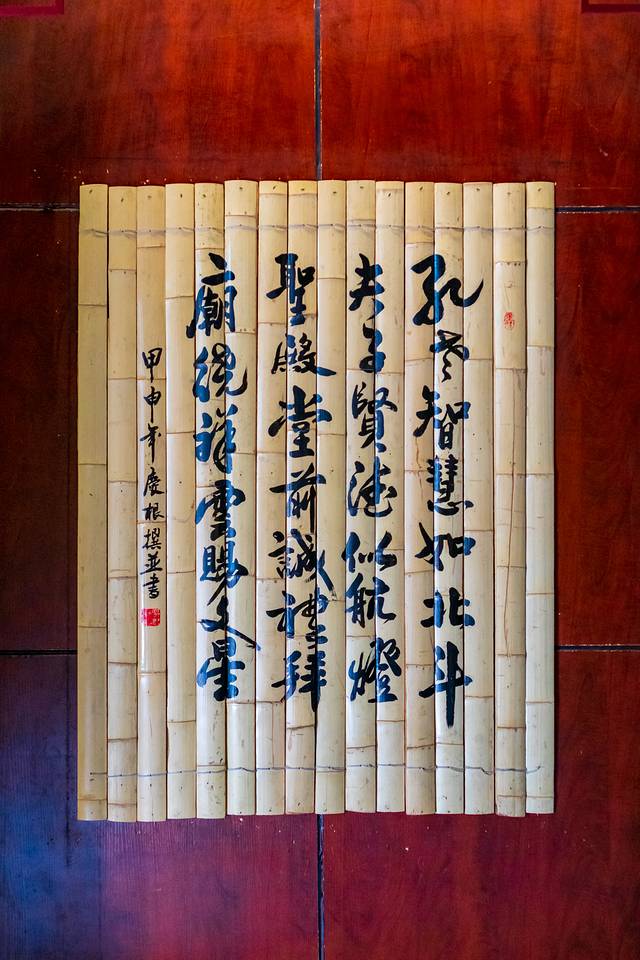 孔老智慧如北斗
夫子賢德似航燈
聖殿堂前誠禮拜
廟繞祥雲賜文星
甲申年慶根撰並書